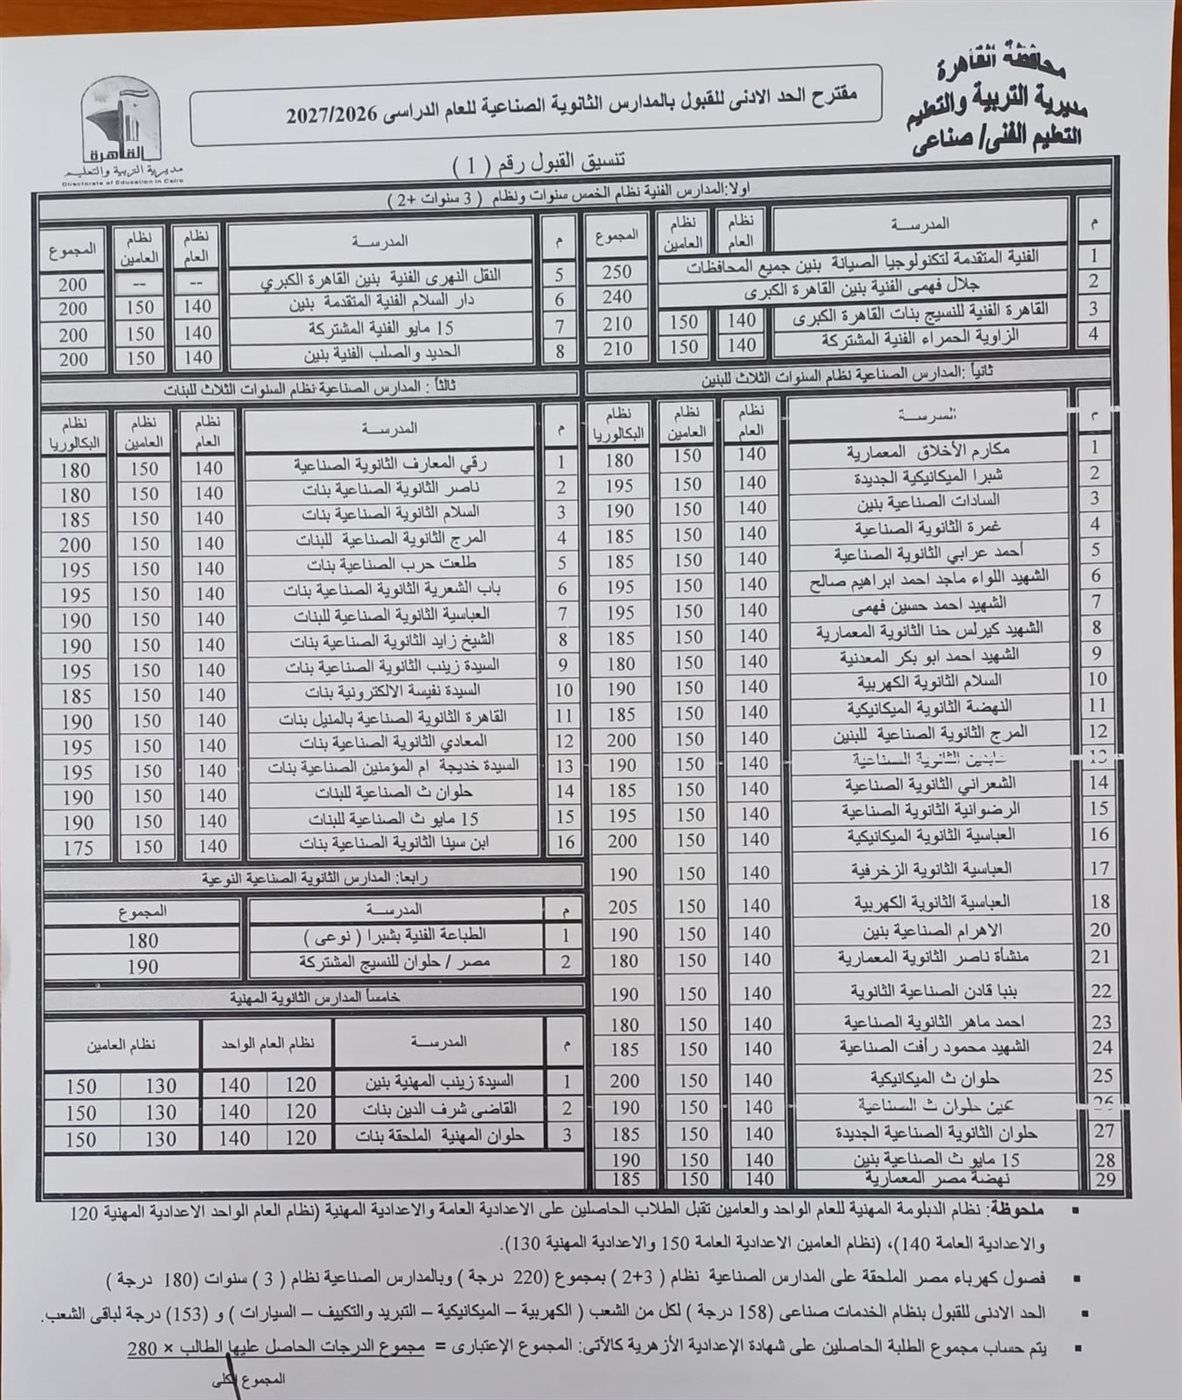 محافظة القاهرة
مديرية التربية والتعليم
التعليم الفنى/ صناعى
مقترح الحد الادنى للقبول بالمدارس الثانوية الصناعية للعام الدراسى 2027/2026
القاهرة
مديرية التربية والتعليم
Directorate of Education in Cairo
تنسيق القبول رقم ( 1 )
اولا:المدارس الفنية نظام الخمس سنوات ونظام ( 3 سنوات +2 )
م المدرسة نظام العام نظام العامين المجموع
1 الفنية المتقدمة لتكنولوجيا الصيانة بنين جميع المحافظات 250
2 جلال فهمى الفنية بنين القاهرة الكبرى 240
3 القاهرة الفنية للنسيج بنات القاهرة الكبرى 140 150 210
4 الزاوية الحمراء الفنية المشتركة 140 150 210
م المدرسة نظام العام نظام العامين المجموع
5 النقل النهرى الفنية بنين القاهرة الكبري -- -- 200
6 دار السلام الفنية المتقدمة بنين 140 150 200
7 15 مايو الفنية المشتركة 140 150 200
8 الحديد والصلب الفنية بنين 140 150 200
ثانياً :المدارس الصناعية نظام السنوات الثلاث للبنين
م المدرسة نظام العام نظام العامين نظام البكالوريا
1 مكارم الأخلاق المعمارية 140 150 180
2 شبرا الميكانيكية الجديدة 140 150 195
3 السادات الصناعية بنين 140 150 190
4 غمرة الثانوية الصناعية 140 150 185
5 أحمد عرابي الثانوية الصناعية 140 150 185
6 الشهيد اللواء ماجد احمد ابراهيم صالح 140 150 195
7 الشهيد احمد حسين فهمى 140 150 195
8 الشهيد كيرلس حنا الثانوية المعمارية 140 150 185
9 الشهيد احمد ابو بكر المعدنية 140 150 180
10 السلام الثانوية الكهربية 140 150 190
11 النهضة الثانوية الميكانيكية 140 150 185
12 المرج الثانوية الصناعية للبنين 140 150 200
13 عابدين الثانوية الصناعية 140 150 190
14 الشعراني الثانوية الصناعية 140 150 185
15 الرضوانية الثانوية الصناعية 140 150 195
16 العباسية الثانوية الميكانيكية 140 150 200
17 العباسية الثانوية الزخرفية 140 150 190
18 العباسية الثانوية الكهربية 140 150 205
20 الاهرام الصناعية بنين 140 150 190
21 منشأة ناصر الثانوية المعمارية 140 150 180
22 بنبا قادن الصناعية الثانوية 140 150 190
23 احمد ماهر الثانوية الصناعية 140 150 180
24 الشهيد محمود رأفت الصناعية 140 150 185
25 حلوان ث الميكانيكية 140 150 200
26 عين حلوان ث الصناعية 140 150 190
27 حلوان الثانوية الصناعية الجديدة 140 150 185
28 15 مايو ث الصناعية بنين 140 150 190
29 نهضة مصر المعمارية 140 150 185
ثالثاً : المدارس الصناعية نظام السنوات الثلاث للبنات
م المدرسة نظام العام نظام العامين نظام البكالوريا
1 رقي المعارف الثانوية الصناعية 140 150 180
2 ناصر الثانوية الصناعية بنات 140 150 180
3 السلام الثانوية الصناعية بنات 140 150 185
4 المرج الثانوية الصناعية للبنات 140 150 200
5 طلعت حرب الصناعية بنات 140 150 195
6 باب الشعرية الثانوية الصناعية بنات 140 150 195
7 العباسية الثانوية الصناعية للبنات 140 150 190
8 الشيخ زايد الثانوية الصناعية بنات 140 150 190
9 السيدة زينب الثانوية الصناعية بنات 140 150 195
10 السيدة نفيسة الالكترونية بنات 140 150 185
11 القاهرة الثانوية الصناعية بالمنيل بنات 140 150 190
12 المعادي الثانوية الصناعية بنات 140 150 195
13 السيدة خديجة ام المؤمنين الصناعية بنات 140 150 195
14 حلوان ث الصناعية للبنات 140 150 190
15 15 مايو ث الصناعية للبنات 140 150 190
16 ابن سينا الثانوية الصناعية بنات 140 150 175
رابعا: المدارس الثانوية الصناعية النوعية
م المدرسة المجموع
1 الطباعة الفنية بشبرا ( نوعى ) 180
2 مصر / حلوان للنسيج المشتركة 190
خامساً المدارس الثانوية المهنية
م المدرسة نظام العام الواحد نظام العامين
1 السيدة زينب المهنية بنين 120 140 130 150
2 القاضى شرف الدين بنات 120 140 130 150
3 حلوان المهنية الملحقة بنات 120 140 130 150
▪ ملحوظة: نظام الدبلومة المهنية للعام الواحد والعامين تقبل الطلاب الحاصلين على الاعدادية العامة والاعدادية المهنية (نظام العام الواحد الاعدادية المهنية 120
والاعدادية العامة 140)، (نظام العامين الاعدادية العامة 150 والاعدادية المهنية 130).
▪ فصول كهرباء مصر الملحقة على المدارس الصناعية نظام ( 3+2 ) بمجموع (220 درجة ) وبالمدارس الصناعية نظام ( 3 ) سنوات (180 درجة )
▪ الحد الادنى للقبول بنظام الخدمات صناعى (158 درجة ) لكل من الشعب ( الكهربية – الميكانيكية – التبريد والتكييف – السيارات ) و (153) درجة لباقى الشعب.
▪ يتم حساب مجموع الطلبة الحاصلين على شهادة الإعدادية الأزهرية كالآتى: المجموع الإعتبارى = مجموع الدرجات الحاصل عليها الطالب × 280
المجموع الكلى